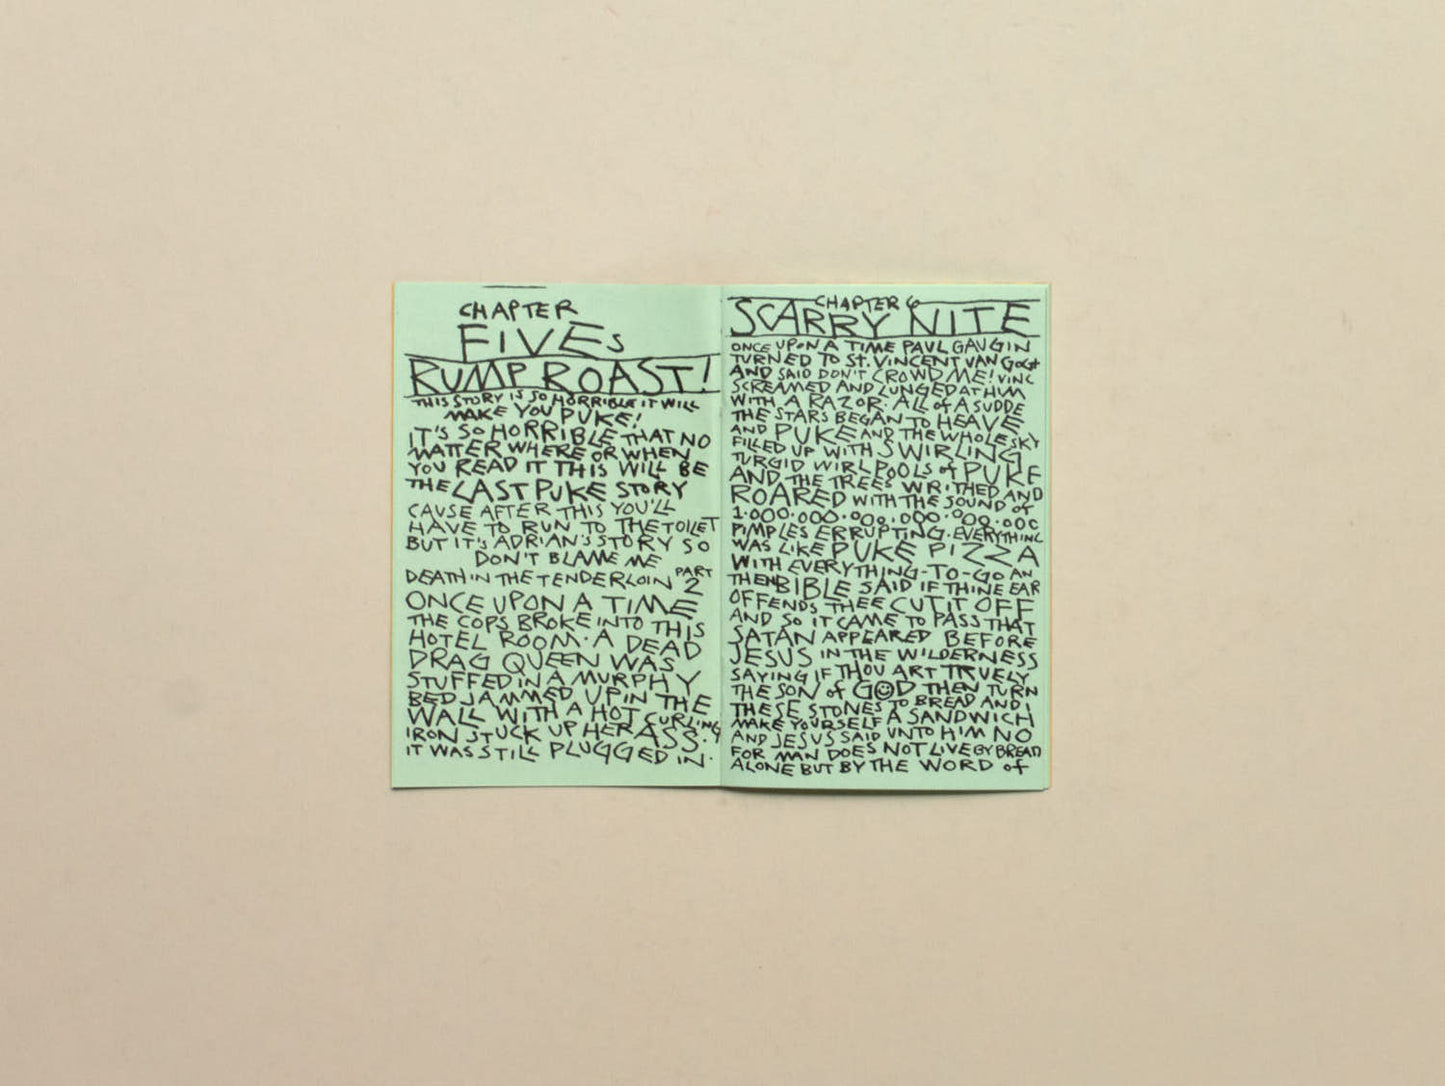 CHAPTER
FIVES
RUMP ROAST!
THIS STORY IS SO HORRIBLE IT WILL
MAKE YOU PUKE!
IT'S SO HORRIBLE THAT NO
MATTER WHERE OR WHEN
YOU READ IT THIS WILL BE
THE LAST PUKE STORY
CAUSE AFTER THIS YOU'LL
HAVE TO RUN TO THE TOILET
BUT IT'S ADRIAN'S STORY SO
DON'T BLAME ME
DEATH IN THE TENDERLOIN PART 2
ONCE UPON A TIME
THE COPS BROKE INTO THIS
HOTEL ROOM. A DEAD
DRAG QUEEN WAS
STUFFED IN A MURPHY
BED JAMMED UP IN THE
WALL WITH A HOT CURLING
IRON STUCK UP HER ASS.
IT WAS STILL PLUGGED IN.
CHAPTER 6
SCARRY NITE
ONCE UPON A TIME PAUL GAUGIN
TURNED TO ST. VINCENT VAN GOGH
AND SAID DON'T CROWD ME! VINC
SCREAMED AND LUNGED AT HIM
WITH A RAZOR. ALL of A SUDDE
THE STARS BEGAN TO HEAVE
AND PUKE AND THE WHOLE SKY
FILLED UP WITH SWIRLING
TURGID WIRLPOOLS of PUKE
AND THE TREES WRITHED AND
ROARED WITH THE SOUND of
1.000.000.000.000.000.000
PIMPLES ERRUPTING. EVERYTHING
WAS LIKE PUKE PIZZA
WITH EVERYTHING-TO-GO AN
THEN BIBLE SAID IF THINE EAR
OFFENDS THEE CUT IT OFF
AND SO IT CAME TO PASS THAT
SATAN APPEARED BEFORE
JESUS IN THE WILDERNESS
SAYING IF THOU ART TRUELY
THE SON of GOD THEN TURN
THESE STONES TO BREAD AND
MAKE YOURSELF A SANDWICH
AND JESUS SAID UNTO HIM NO
FOR MAN DOES NOT LIVE BY BREAD
ALONE BUT BY THE WORD of